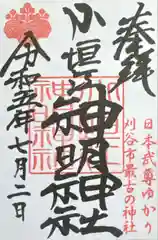 奉拝
日本武尊ゆかり
刈谷市最古の神社
小垣江神明神社
令和五年七月二日